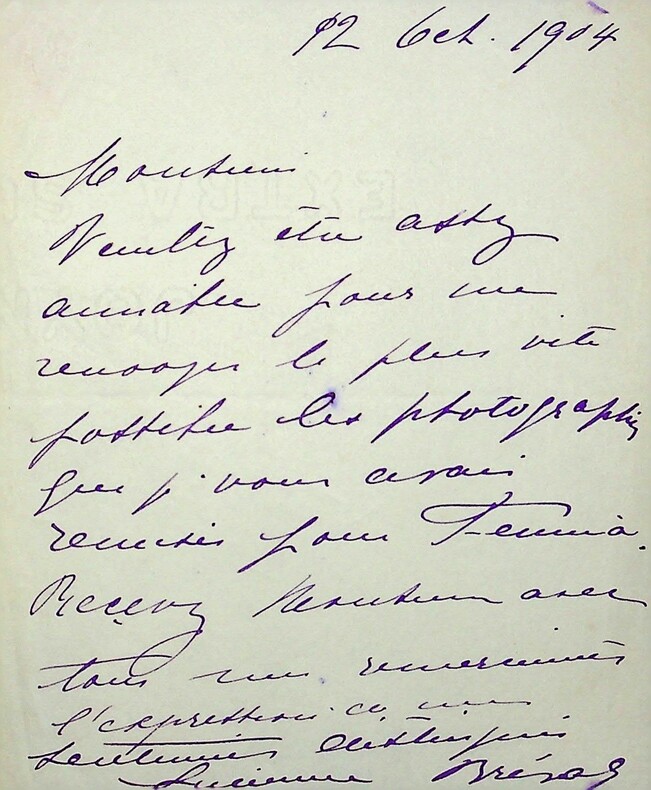 12 Oct. 1904
Monsieur
Veuillez être assez
aimable pour me
renvoyer le plus vite
possible les photographies
que je vous avais
remises pour Femina.
Recevez Monsieur avec
tous mes remerciements
l'expression de mes
sentiments distingués
Lucienne Bréval